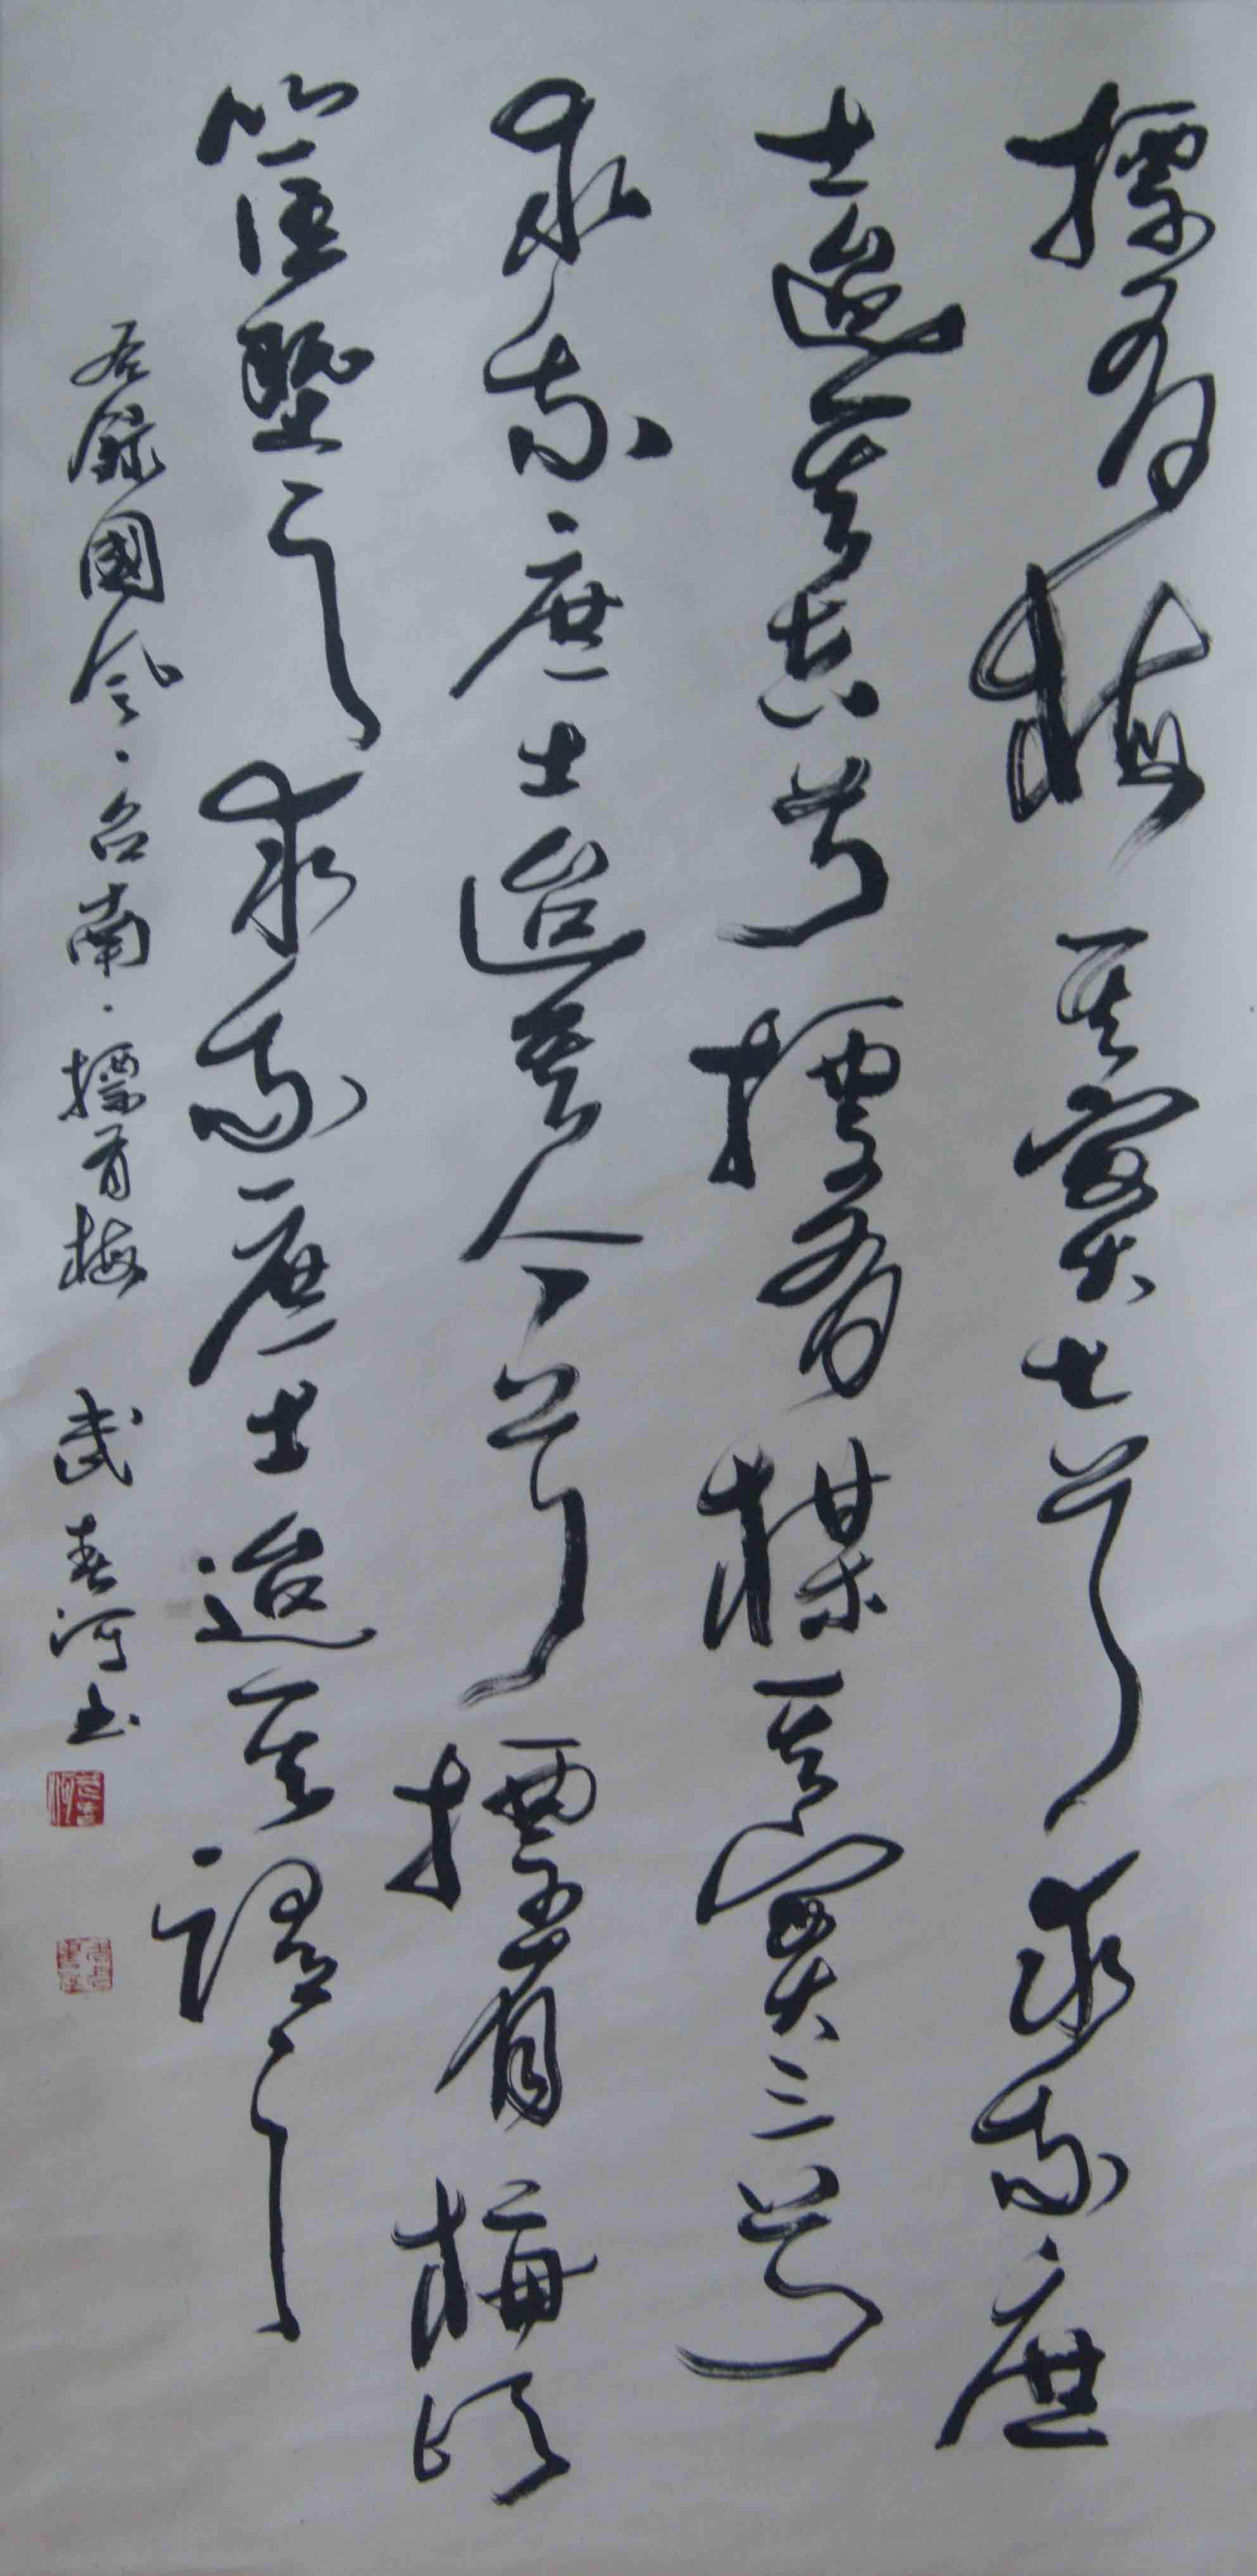 摽有梅其實七兮求我庶
士迨其吉兮摽有楳其實三兮
求我庶士迨其今兮摽有梅頃
筐塈之求我庶士迨其謂之
右錄國風·召南·摽有梅 武春河書